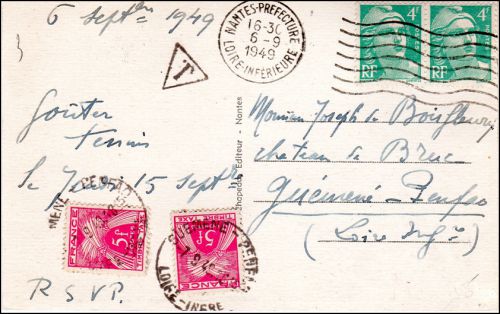 6 Septbre 1949
NANTES-PREFECTURE
16-30
6-9
1949
LOIRE-INFÉRIEURE
4F
4F
RF
RF
T
Goûter
Tennis
Le Jeudi 15 Septbre
R S V P.
Chapeau Editeur - Nantes
Monsieur Joseph de Boisfleury
château de Bruc
Guéméné-Penfao
(Loire Infre)
5F
FRANCE
TIMBRE TAXE
5F
FRANCE
TIMBRE TAXE
PENFAO
LOIRE-INFRE